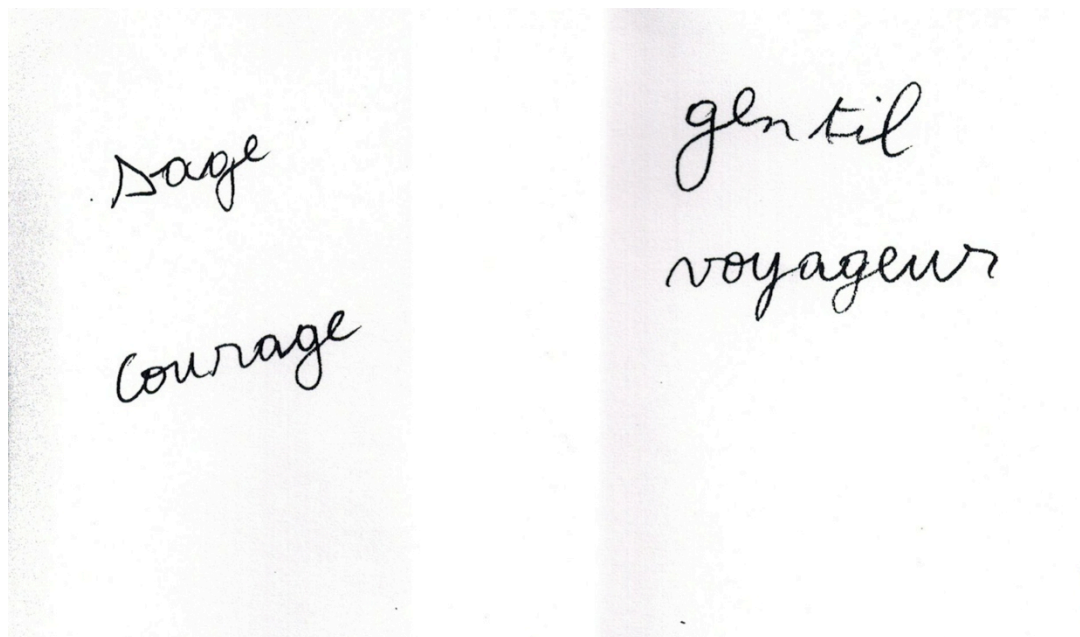 sage
courage
gentil
voyageur